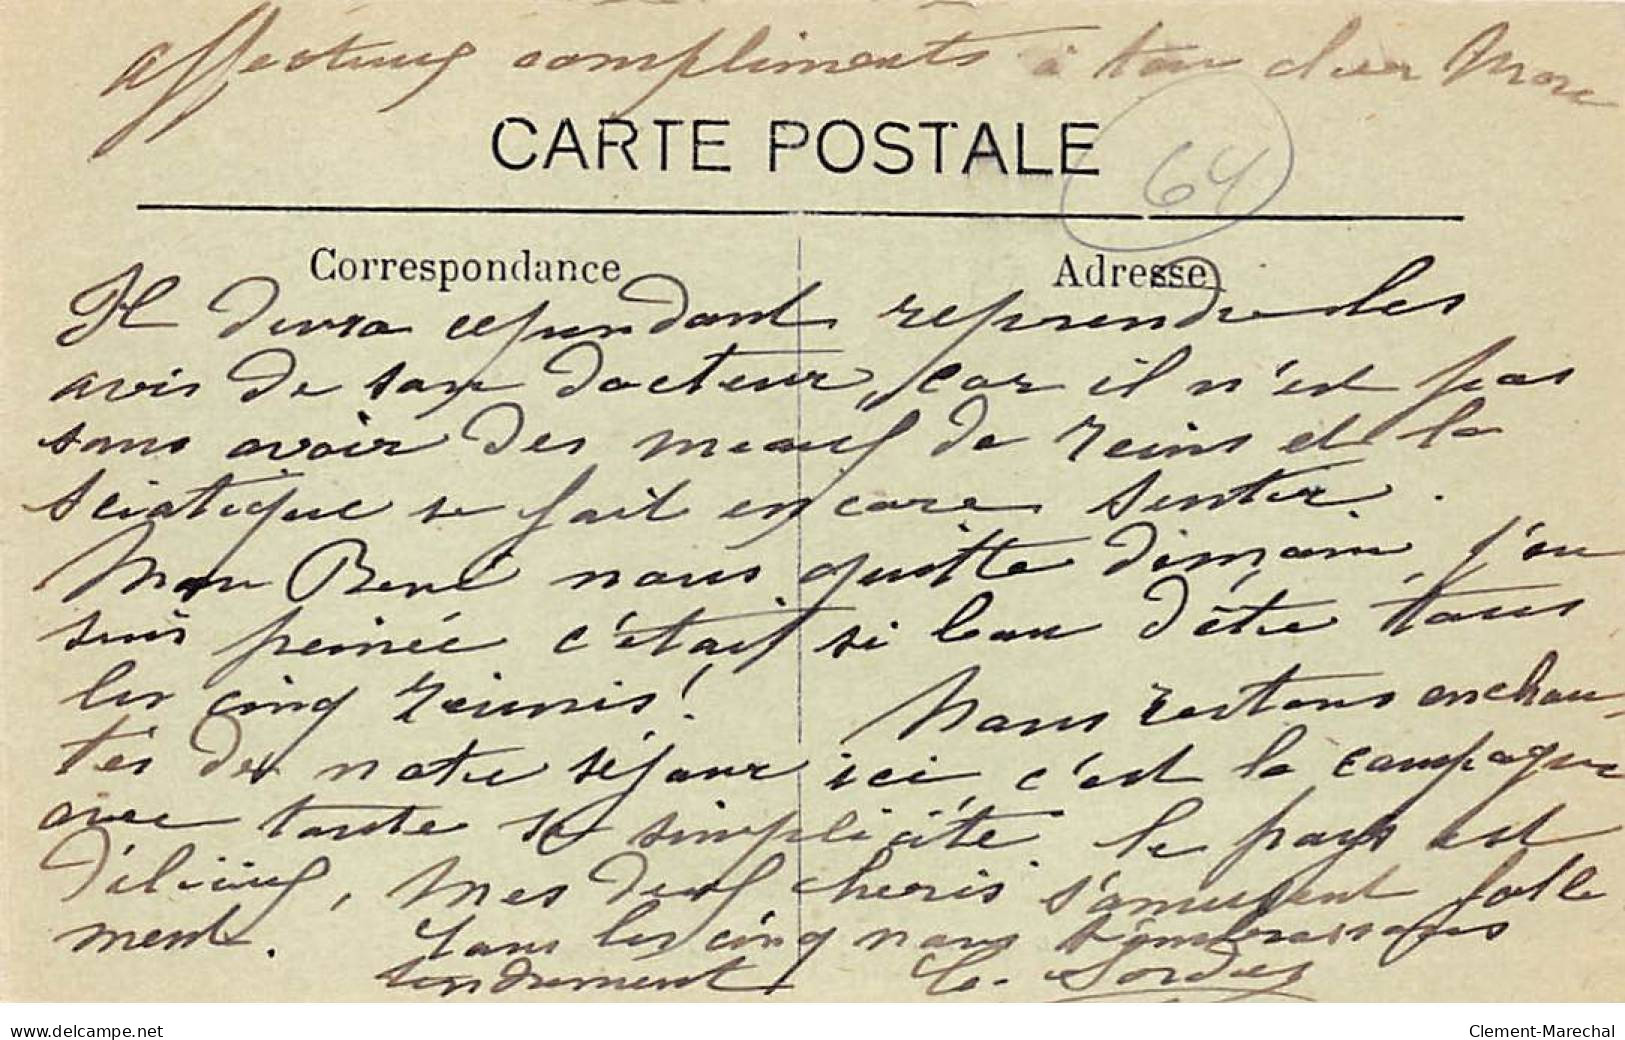 affectueux compliments à ton cher Marc
CARTE POSTALE
64
Correspondance
Adresse
Il devra cependant reprendre les
avis de son docteur, car il n'est pas
sans avoir des maux de reins et la
sciatique se fait encore sentir.
Mon René nous quitte demain, j'en
suis peinée c'était si bon d'être tous
les cinq réunis! Nous restons enchan-
tés de notre séjour ici, c'est la campagne
avec toute sa simplicité le pays est
délicieux, Mes deux chéris s'amusent folle
ment. Tous les cinq nous t'embrassons
tendrement
www.delcampe.net
Clement-Marechal